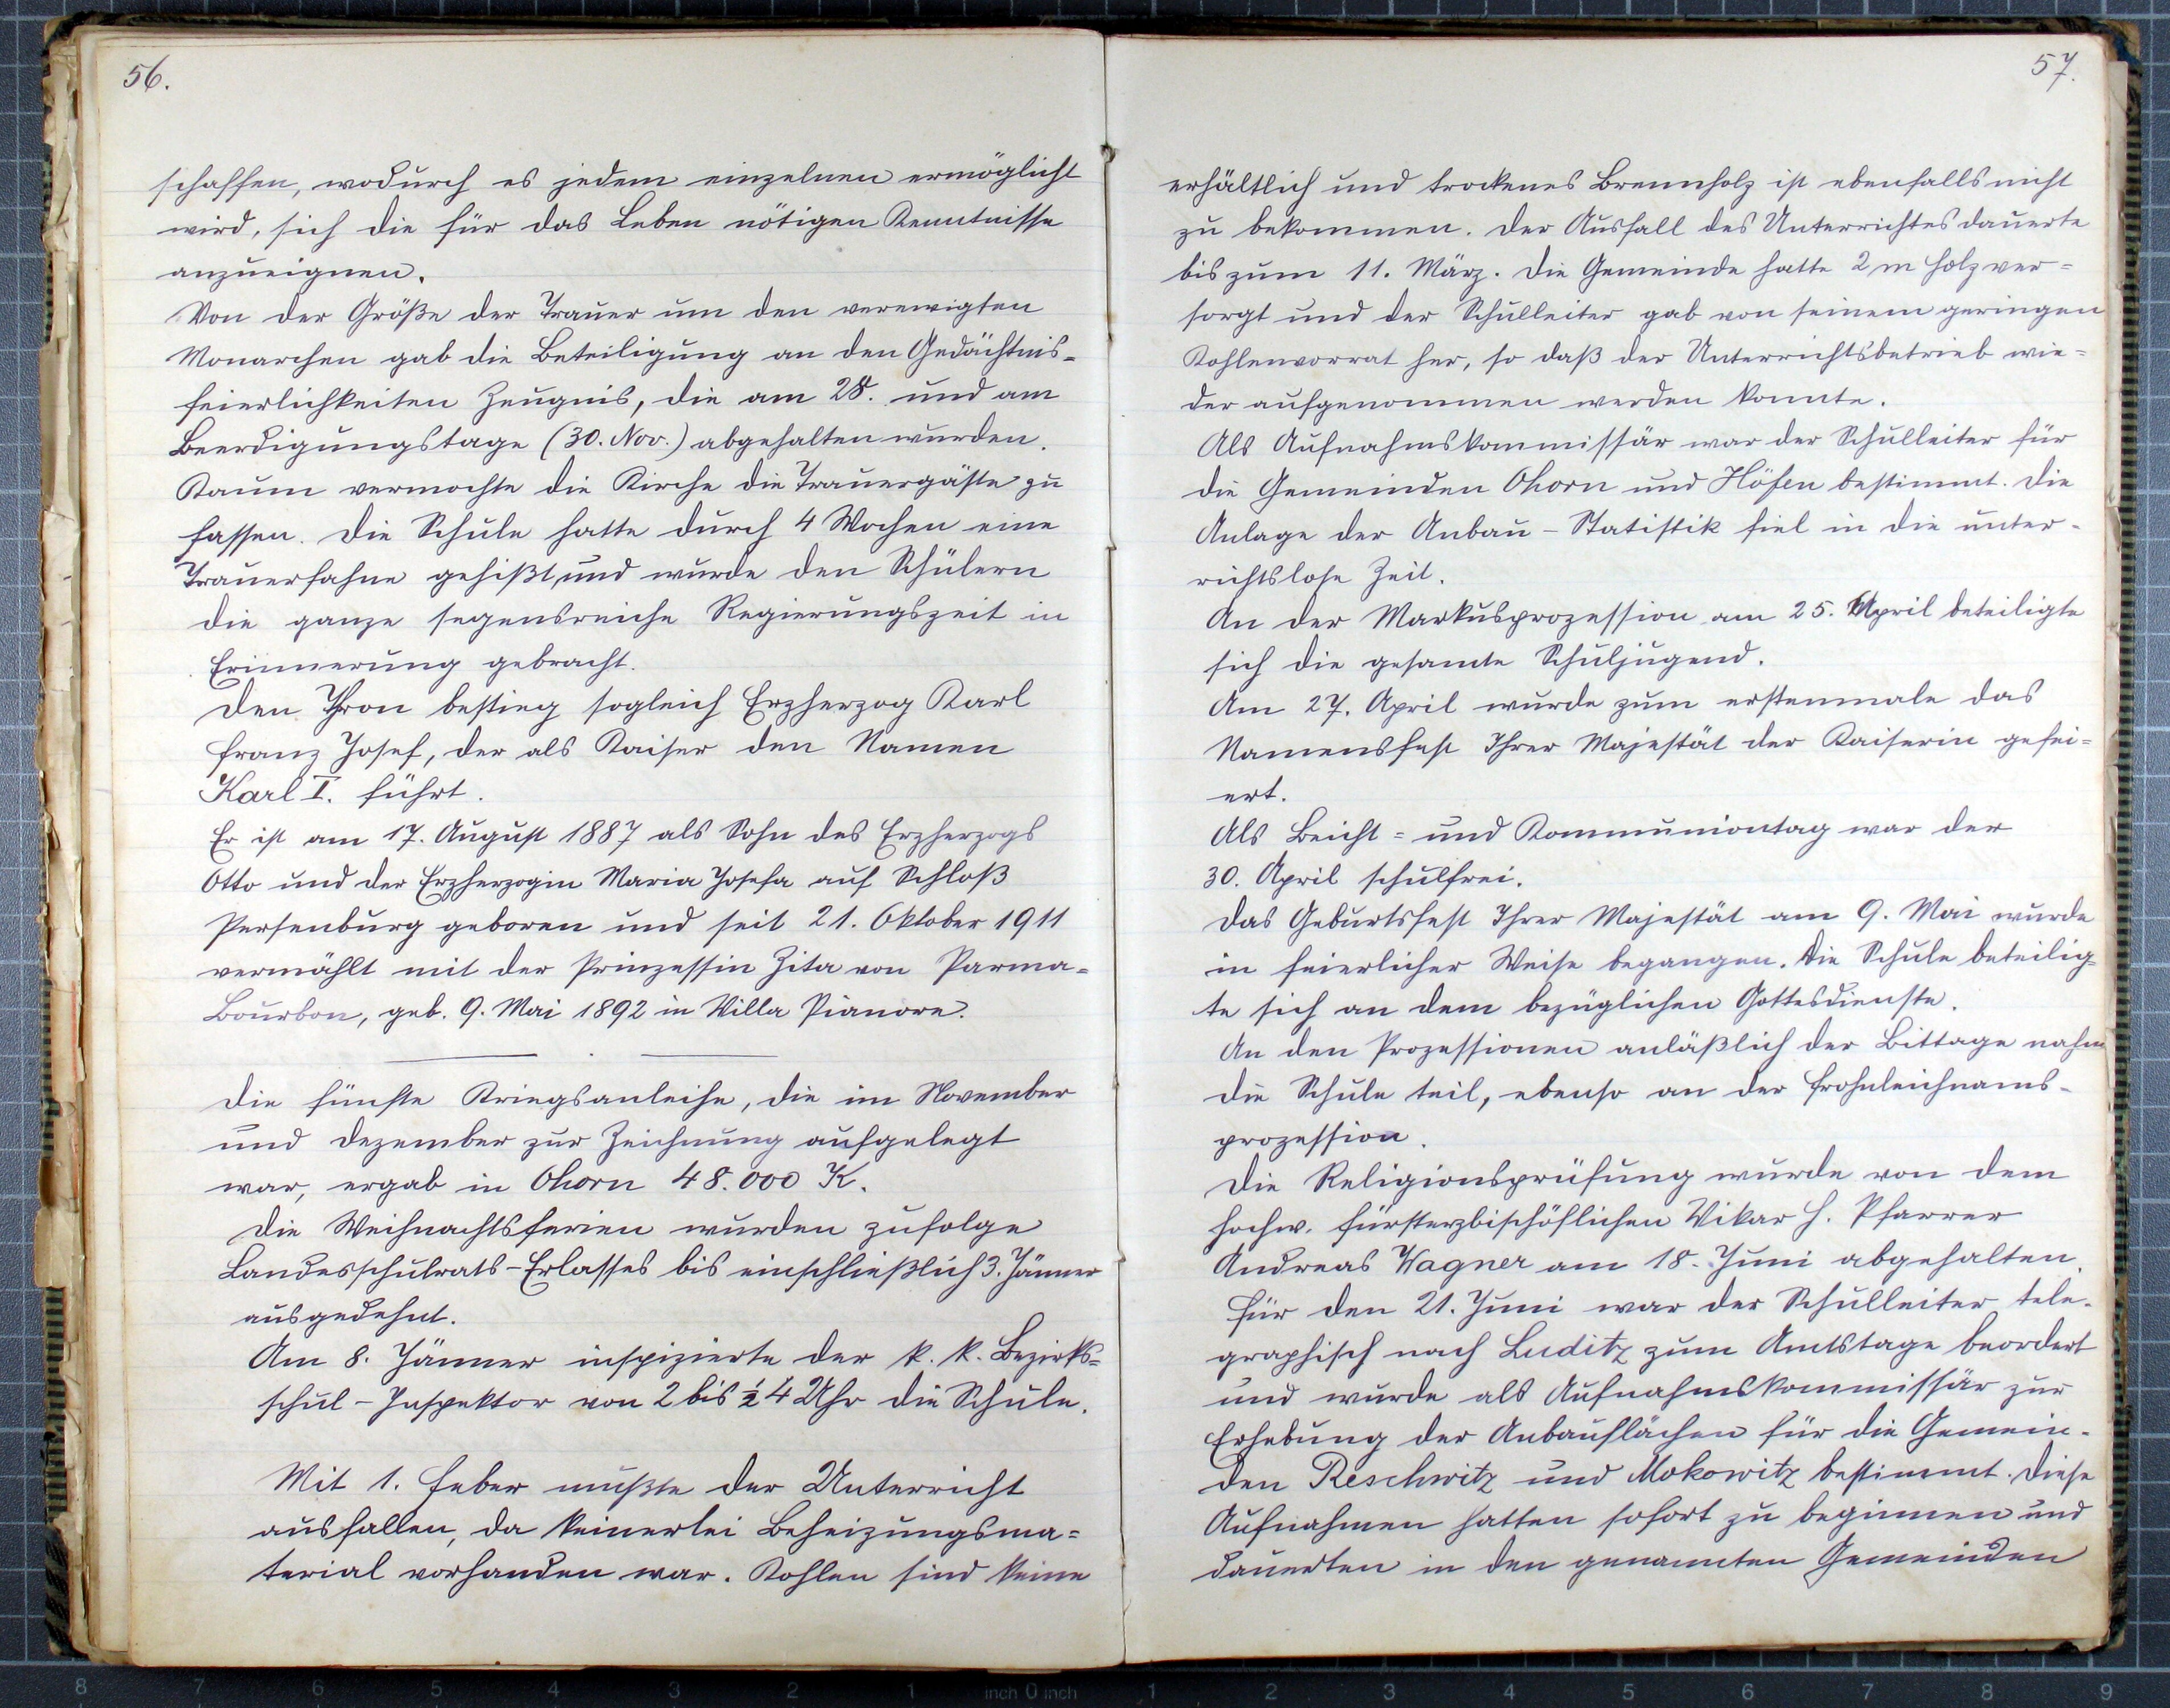 56.
schaffen, wodurch es jedem einzelnen ermöglicht
wird, sich die für das Leben nötigen Kenntnisse
anzueignen.
Von der Größe der Trauer um den verewigten
Monarchen gab die Beteiligung an den Gedächtnis-
feierlichkeiten Zeugnis, die am 28. und am
Beerdigungstage (30. Nov.) abgehalten wurden.
Kaum vermochte die Kirche die Trauergäste zu
fassen. Die Schule hatte durch 4 Wochen eine
Trauerfahne gehißt, und wurde den Schülern
die ganze segensreiche Regierungszeit in
Erinnerung gebracht.
Den Thron bestieg sogleich Erzherzog Karl
Franz Josef, der als Kaiser den Namen
Karl I. führt.
Er ist am 17. August 1887 als Sohn des Erzherzogs
Otto und der Erzherzogin Maria Josefa auf Schloß
Persenburg geboren und seit 21. Oktober 1911
vermählt mit der Prinzessin Zita von Parma-
Bourbon, geb. 9. Mai 1892 in Villa Pianore.
Die fünfte Kriegsanleihe, die im November
und Dezember zur Zeichnung aufgelegt
war, ergab in Ohorn 48.000 K.
Die Weihnachtsferien wurden zufolge
Landesschulrats-Erlasses bis einschließlich 3. Jänner
ausgedehnt.
Am 8. Jänner inspizierte der k. k. Bezirks-
schul-Inspektor von 2 bis ½ 4 Uhr die Schule.
Mit 1. Feber mußte der Unterricht
ausfallen, da keinerlei Beheizungsma-
terial vorhanden war. Kohlen sind keine
57.
erhältlich und trockenes Brennholz ist ebenfalls nicht
zu bekommen. Der Ausfall des Unterrichtes dauerte
bis zum 11. März. Die Gemeinde hatte 2 m Holz ver-
sorgt und der Schulleiter gab von seinem geringen
Kohlenvorrat her, so daß der Unterrichtsbetrieb wie-
der aufgenommen werden konnte.
Als Aufnahmskommissär war der Schulleiter für
die Gemeinden Ohorn und Höfen bestimmt. Die
Anlage der Anbau-Statistik fiel in die unter-
richtslose Zeit.
An der Markusprozession am 25. April beteiligte
sich die gesamte Schuljugend.
Am 27. April wurde zum erstenmale das
Namensfest Ihrer Majestät der Kaiserin gefei-
ert.
Als Beicht- und Kommuniontag war der
30. April schulfrei.
Das Geburtsfest Ihrer Majestät am 9. Mai wurde
in feierlicher Weise begangen. Die Schule beteilig-
te sich an dem bezüglichen Gottesdienste.
An den Prozessionen anläßlich der Bittage nahm
die Schule teil, ebenso an der Frohnleichnams-
prozession.
Die Religionsprüfung wurde von dem
hochw. fürsterzbischöflichen Vikar H. Pfarrer
Andreas Wagner am 18. Juni abgehalten.
Für den 21. Juni war der Schulleiter tele-
graphisch nach Luditz zum Amtstage beordert
und wurde als Aufnahmskommissär zur
Erhebung der Anbauflächen für die Gemein-
den Reschwitz und Mokowitz bestimmt. Diese
Aufnahmen hatten sofort zu beginnen und
dauerten in den genannten Gemeinden
8 7 6 5 4 3 2 1 inch 0 inch 1 2 3 4 5 6 7 8 9